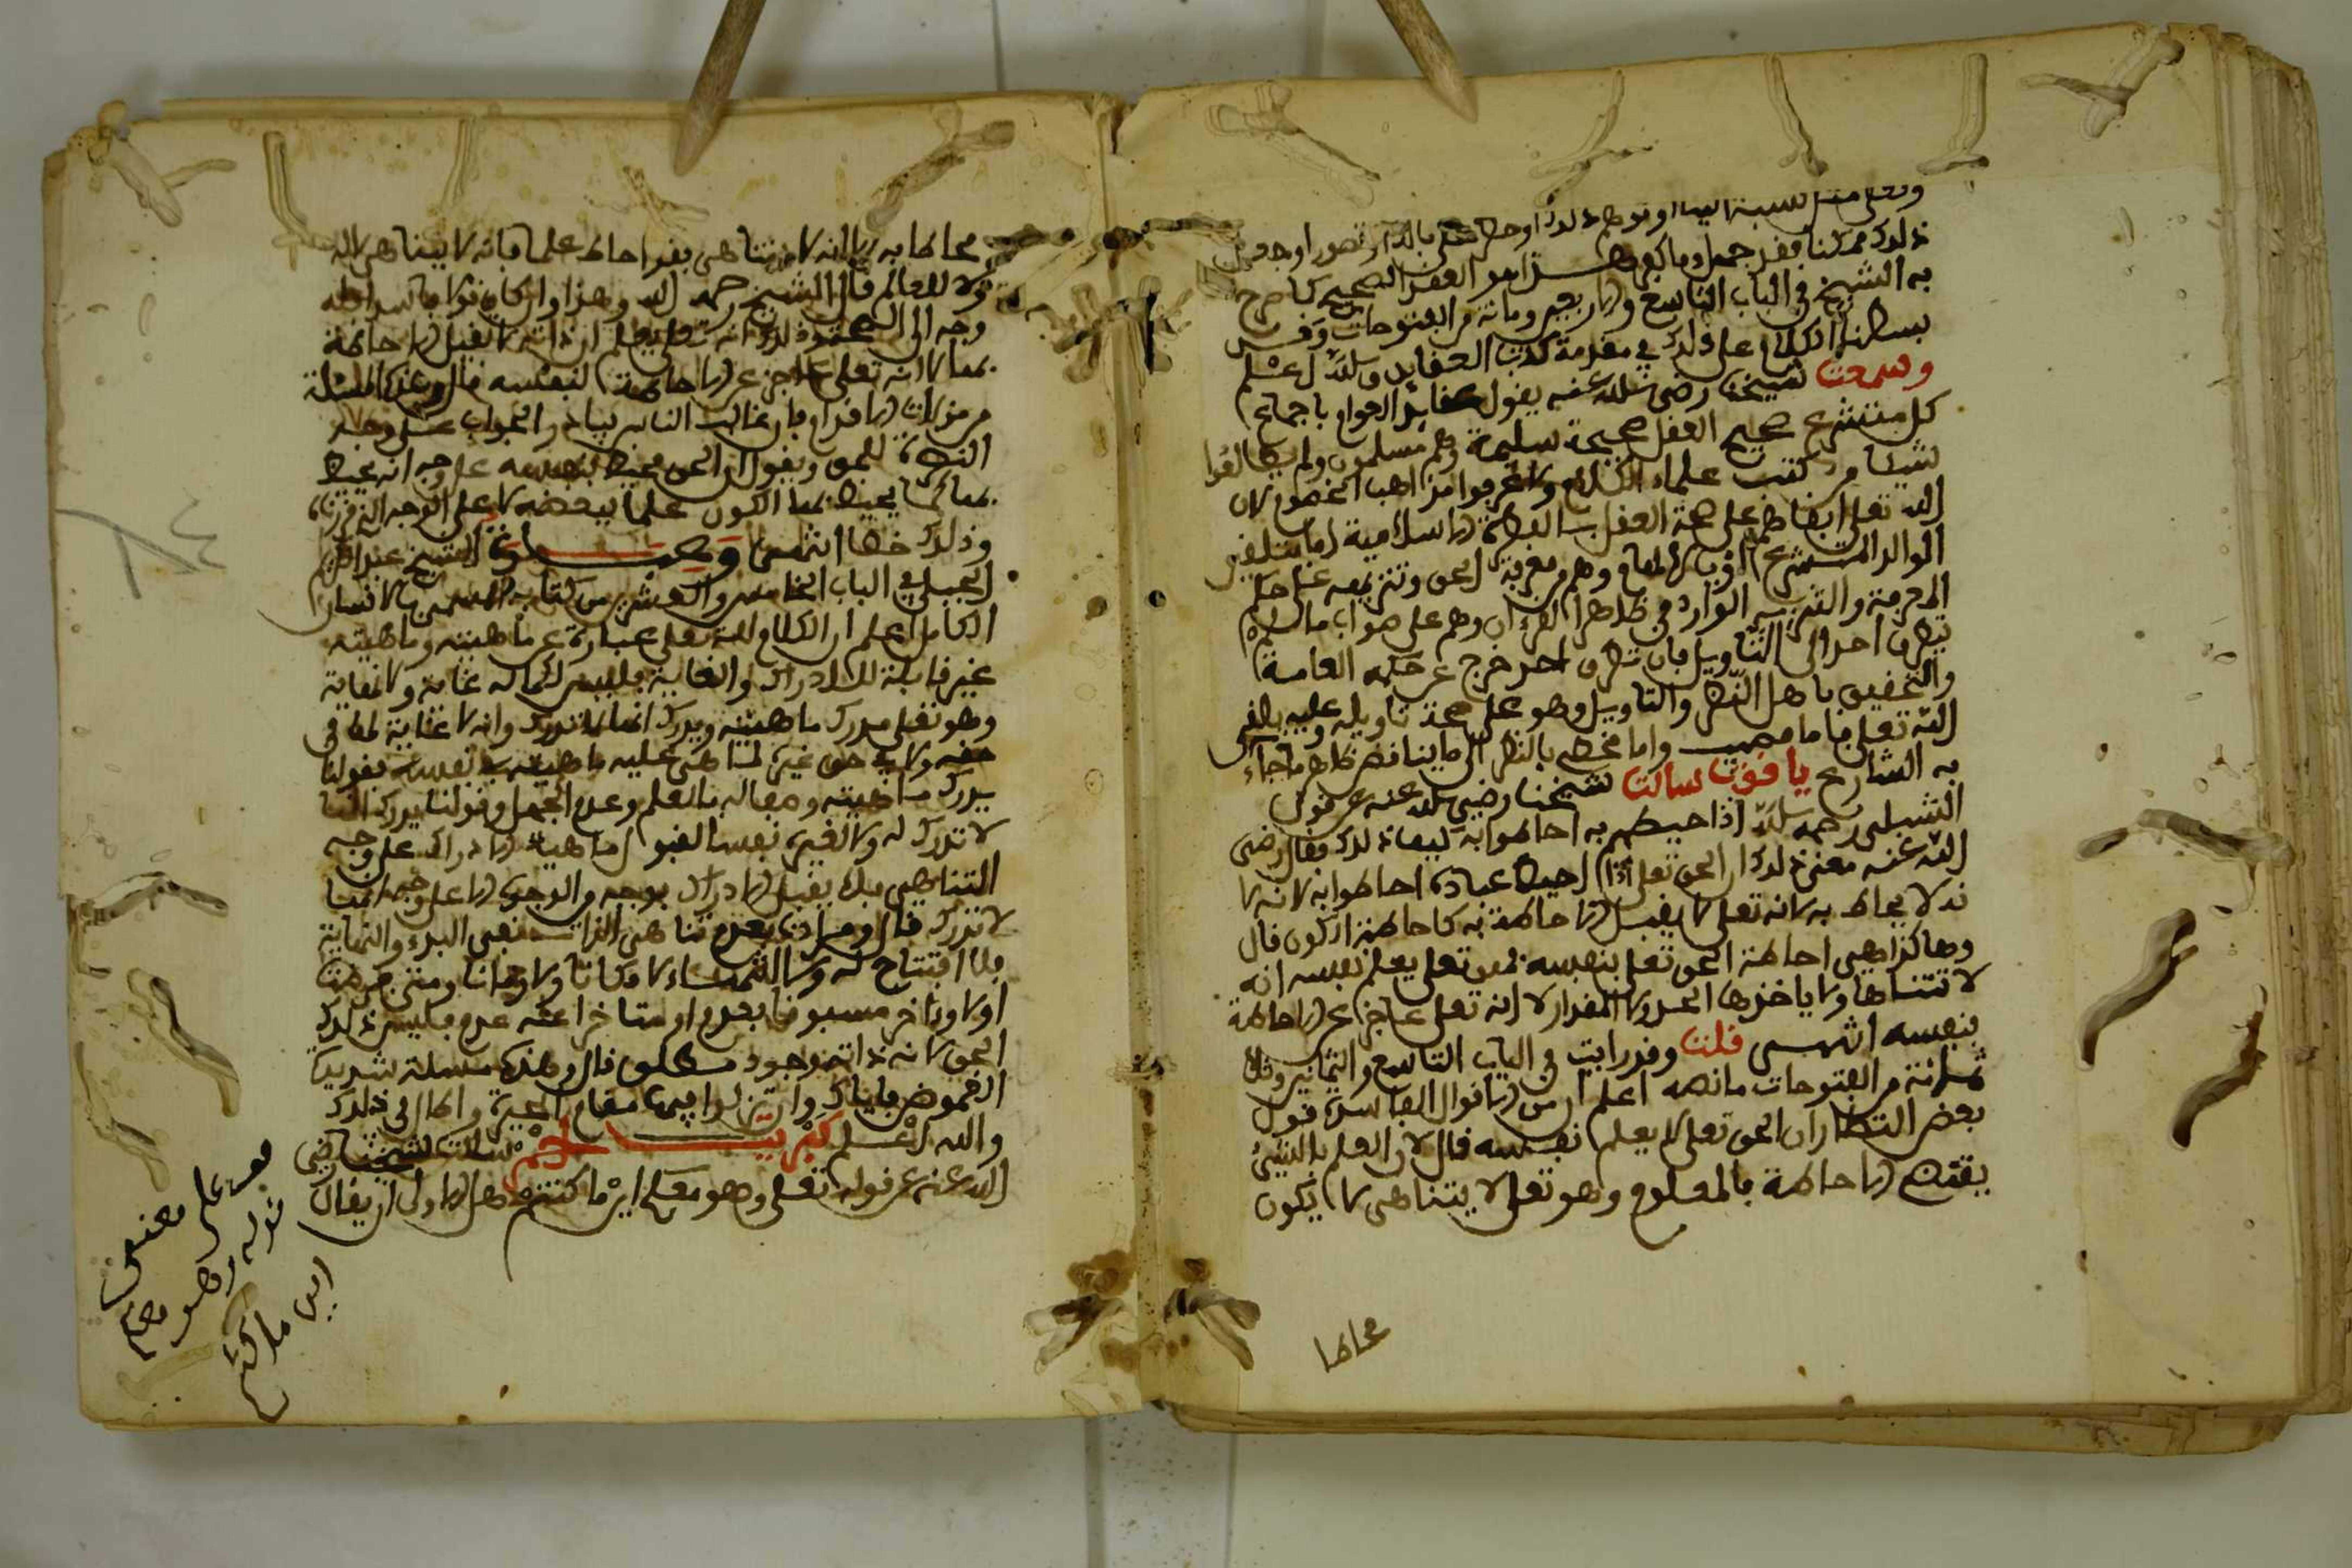 ذلك ممكنا فقد جهل وما كبر وهذا هو العقد الصحيح كما صرح
به الشيخ في الباب التاسع والاربعين ومائة من الفتوحات وقد
بسطنا الكلام على ذلك في مقدمة كتاب العقايد والله اعلم
وسمعت شيخنا رضي الله عنه يقول عقائد العوام باجماع
كل متشرع صحيح العقل صحيحة سليمة وهم مسلمون ولم يطالعوا
شيئا من كتب علماء الكلام ولا عرفوا مذاهب الخصوم لان
الله تعلى ابقاهم على صحة العقل بالفطرة الاسلامية اما بتلقين
الوالد المتشرع او بالالهام وهم من معرفة الحق وتنزيهه على حكم
المعرفة والتنزيه الوارد في ظاهر القرءان وهم على صواب ما لم
يتطرق احد الى التاويل فان تطرق احد خرج عن حكم العامة
والتحق باهل النظر والتاويل وهو على حسب تاويله وعليه يلقى
الله تعلى فاما مصيب واما مخطئ بالنظر الى ما يناقض ظاهر ما جاء
به الشارع ياقوت سالت شيخنا رضي الله عنه عن قول
الشبلي رحمه الله اذا احيطهم به احاطوا به كيف ذلك فقال رضي
الله عنه معنى ذلك ان الحق تعلى اذا احيط عباده احاطوا به لانه لا
لا يحاط به لانه تعلى لا يقبل الاحاطة به كاحاطة الكون قال
وهاكذا هي احاطة الحق تعلى بنفسه فهو تعلى يعلم نفسه انه
لا تتناها ولا ياخذها الحد ولا المقدار لا انه تعلى عاجز عن الاحاطة
بنفسه انتهى قلت وقد رايت في الباب التاسع والثمانين وثلا
ثمائة من الفتوحات ما نصه اعلم ان من الاقوال الفاسدة قول
بعض النظار ان الحق تعلى لا يعلم نفسه قال لان العلم بالشيء
يقتضي الاحاطة بالمعلوم وهو تعلى لا يتناهى لا يكون
محاطا
محاطا به لانه لا يتناهى فقد احاط علما بانه لا يتناهى لا له
ولا للعالم قال الشيخ رحمه الله وهذا وان كان قولا فاسدا فله
وجه الى الصحة وذلك انه تعلى يعلم ان ذاته لا تقبل الاحاطة
بها لا انه تعلى عاجز عن الاحاطة لنفسه قال وهذه المسئلة
من مزلات الاقدام فان غالب الناس يبادر الجواب على وجه
النصرة للحق ويقول ان الحق محيط بنفسه على وجه انه يحيط
بها كما يحيط بهذا الكون علما ببعضه لا على الوجه الذي قررناه
وذلك خطا انتهى وعبارة الشيخ عبد الكريم
الجيلي في الباب الخامس والعشرين من كتابه المسمى بالانسان
الكامل اعلم ان الكلام لله تعلى عبارة عن ماهيته وماهيته
غير قابلة للادراك والغاية فليس لكماله غاية ولا نهاية
وهو تعلى يدرك ماهيته ويدرك انها لا تدرك وانه لا غاية لها في
حقه ولا في حق غيره لما هي عليه ماهيته في نفسه فقولنا
يدرك ماهيته وصف له بالعلم وعدم الجهل وقولنا يدرك انها
لا تدرك له ولا لغيره نفسا لقبول ماهيته الادراك على وجه
التناهي فلا يقبل الادراك بوجه من الوجوه الا على وجه انها
لا تدرك قال ومرادي بعدم تناهي الذات نفي البدء والنهاية
بلا افتتاح له ولا انتهاء لا مكانا ولا زمانا ومتى فرضنا
اولا وءاخر مسبوقا بعدم او متاخرا عنه عدم فليس ذلك
الحق لانه ذاته وجود مطلق قال وهذه مسئلة شديدة
الغموض فاياك وان تزل فيها مقام الحيرة واطال في ذلك
والله اعلم كبريت احمر سالت شيخنا رضي
الله عنه عن قوله تعلى وهو معكم اين ما كنتم هل الاولى ان يقال
على معنى
قوله وهو معكم
اين ما كنتم